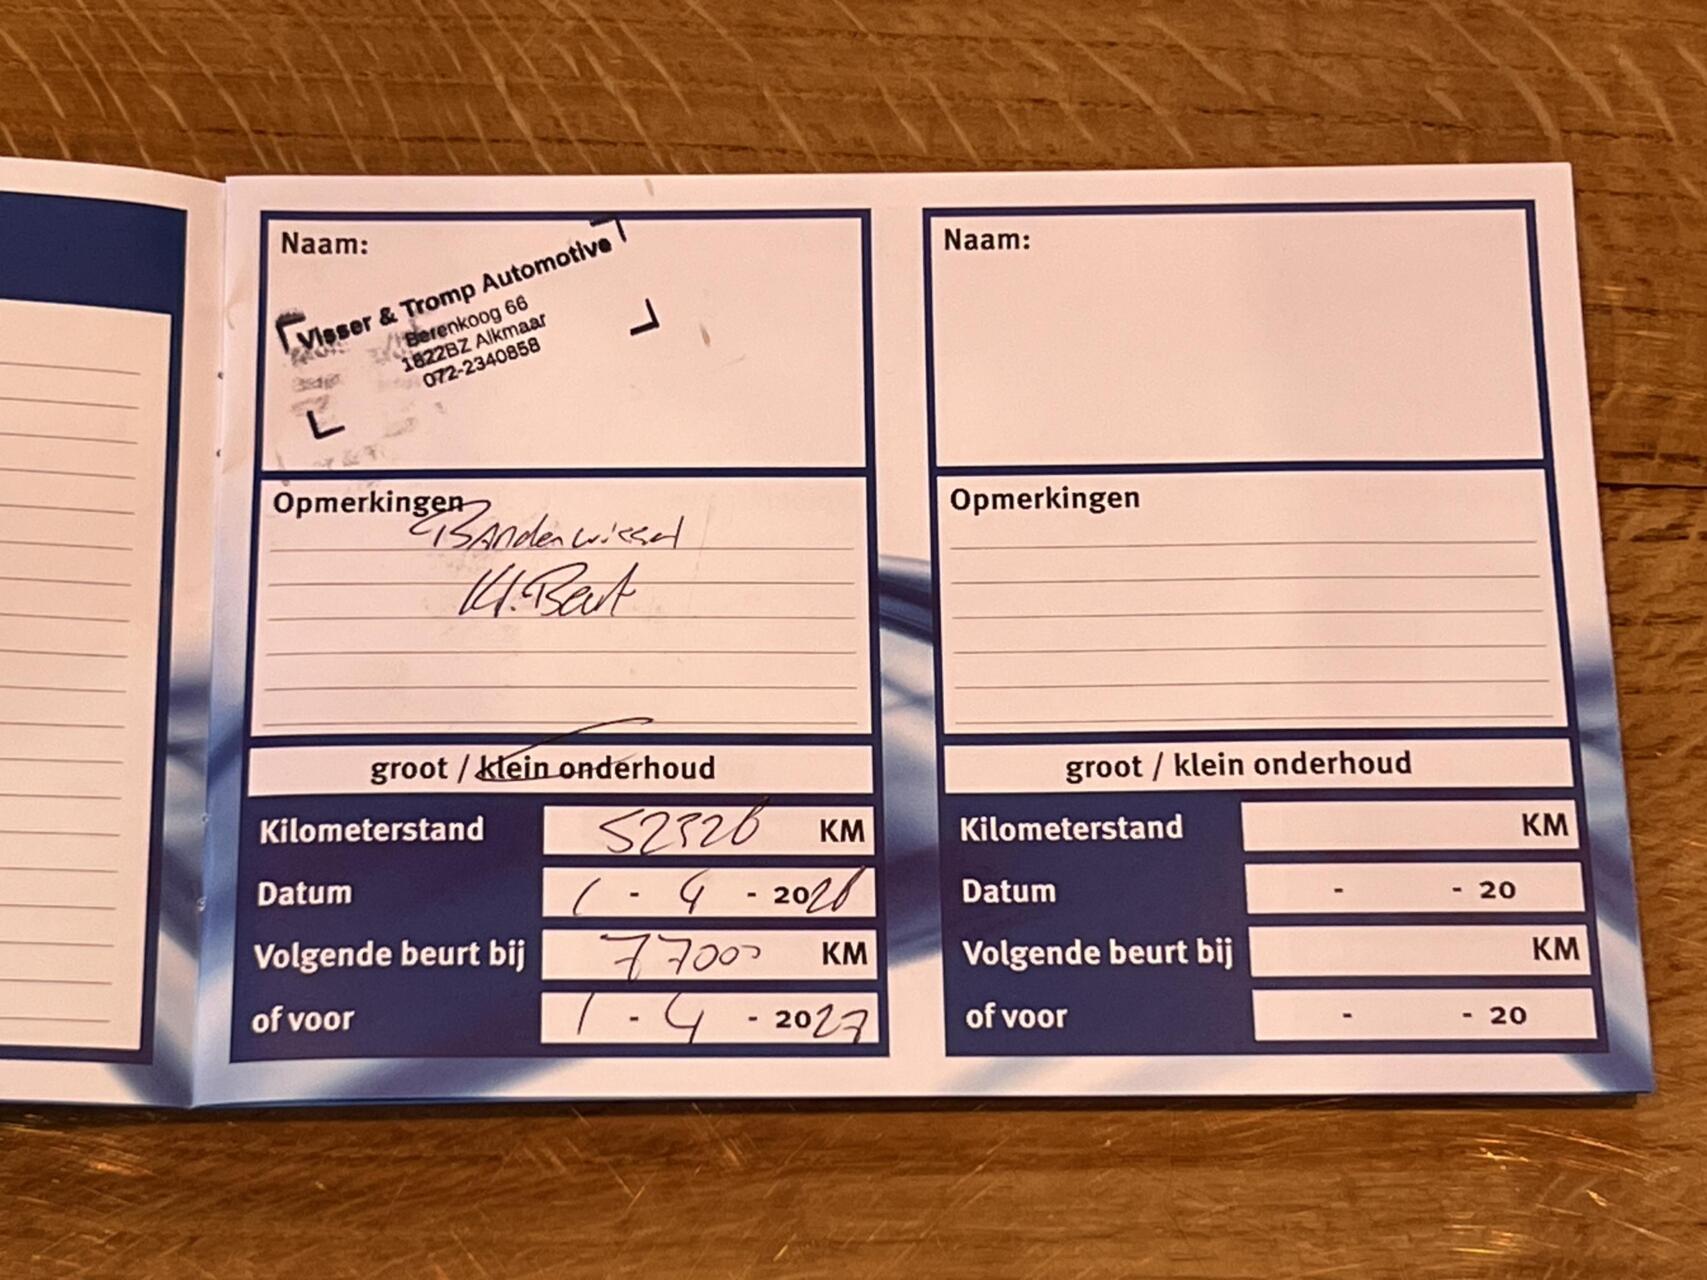 Naam:
Visser & Tromp Automotive
Berenkoog 66
1822BZ Alkmaar
072-2340858
Opmerkingen
Bandenwissel
Kl. Beurt
groot / klein onderhoud
Kilometerstand 52326 KM
Datum 1 - 4 - 2026
Volgende beurt bij 77000 KM
of voor 1 - 4 - 2027
Naam:
Opmerkingen
groot / klein onderhoud
Kilometerstand KM
Datum - - 20
Volgende beurt bij KM
of voor - - 20